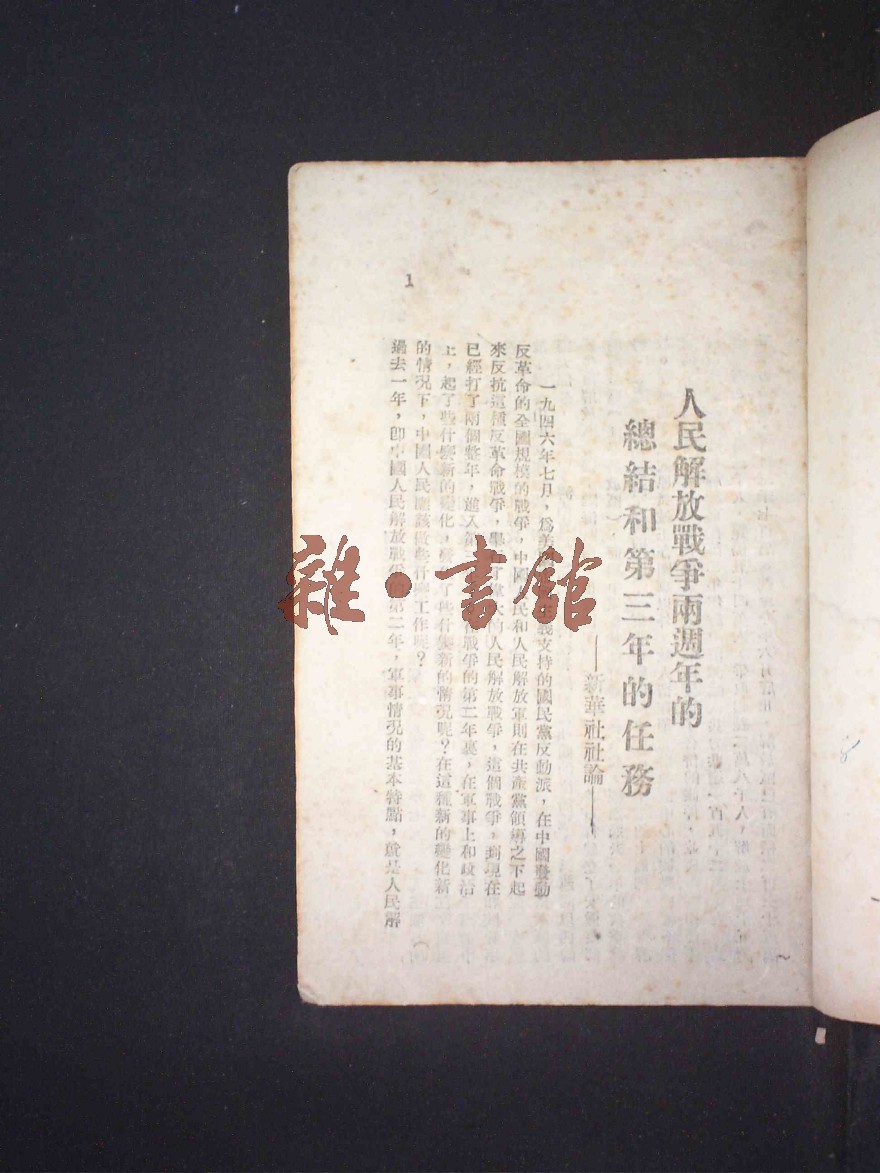 人民解放戰爭兩週年的
總結和第三年的任務
——新華社社論——
一九四六年七月，爲美支持的國民黨反動派，在中國發動
反革命的全國規模的戰爭，中國民和人民解放軍則在共產黨領導之下起
來反抗這種反革命戰爭，人民解放戰爭，這個戰爭，到現在
已經打了兩個整年，進入戰爭的第二年裏，在軍事上和政治
上，起了些什麼新的變化，些什麼新的情况呢？在這種新的變化新
的情况下，中國人民應該做些什麼工作呢？
過去一年，即中國人民解放戰爭的第二年，軍事情况的基本特點，就是人民解
1
雜·書館